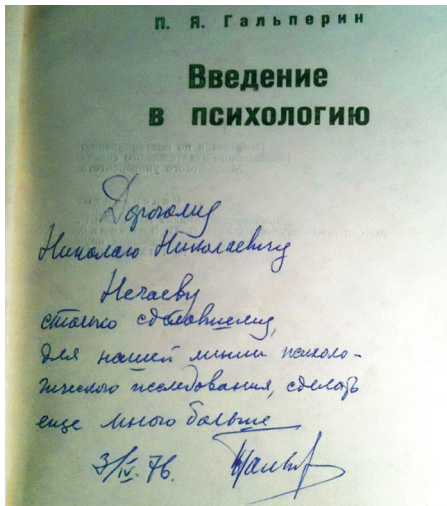 П. Я. Гальперин
Введение
в психологию
Дорогому
Николаю Николаевичу
Нечаеву
столько сделавшему,
для нашей линии психоло-
гического исследования, сделать
еще много больше
3/IV. 76.